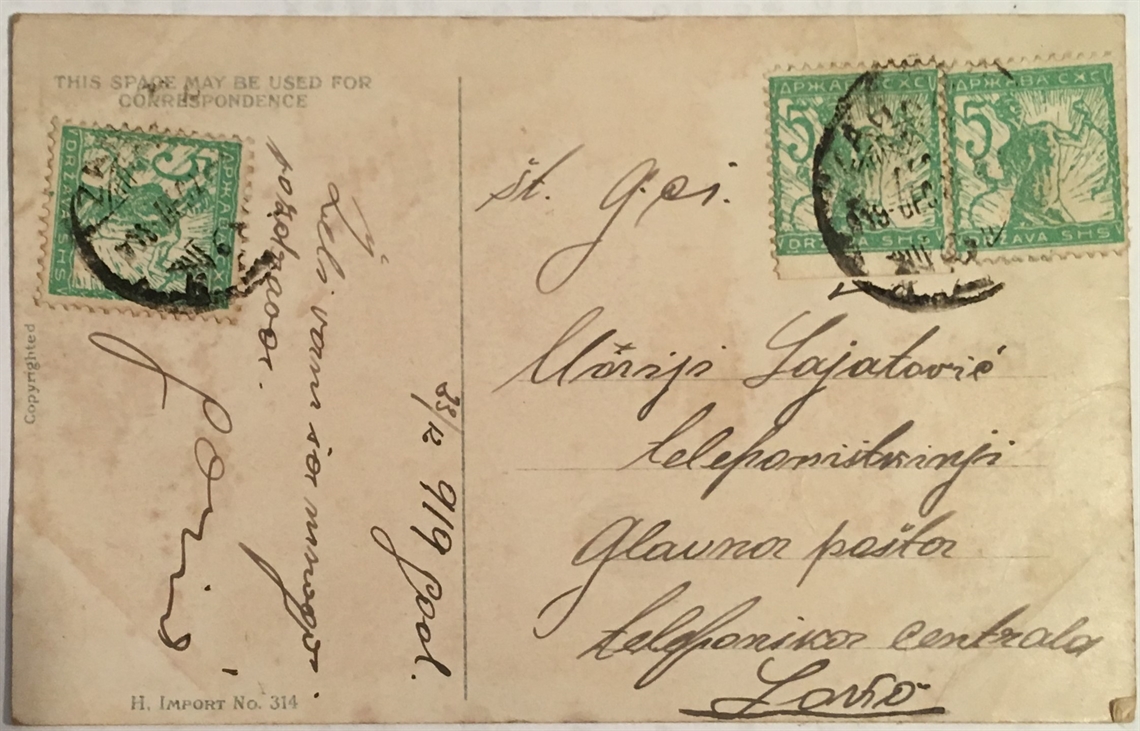 THIS SPACE MAY BE USED FOR
CORRESPONDENCE
ДРЖАВА СХС
5
DRŽAVA SHS
Želi vam sa mnogo
23/12 919 god.
Copyrighted
H. IMPORT No. 314
ДРЖАВА СХС
5
DRŽAVA SHS
ДРЖАВА СХС
5
DRŽAVA SHS
št. g.ci.
Mariji Lajatović
telefonistkinji
Glavna pošta
telefonska centrala